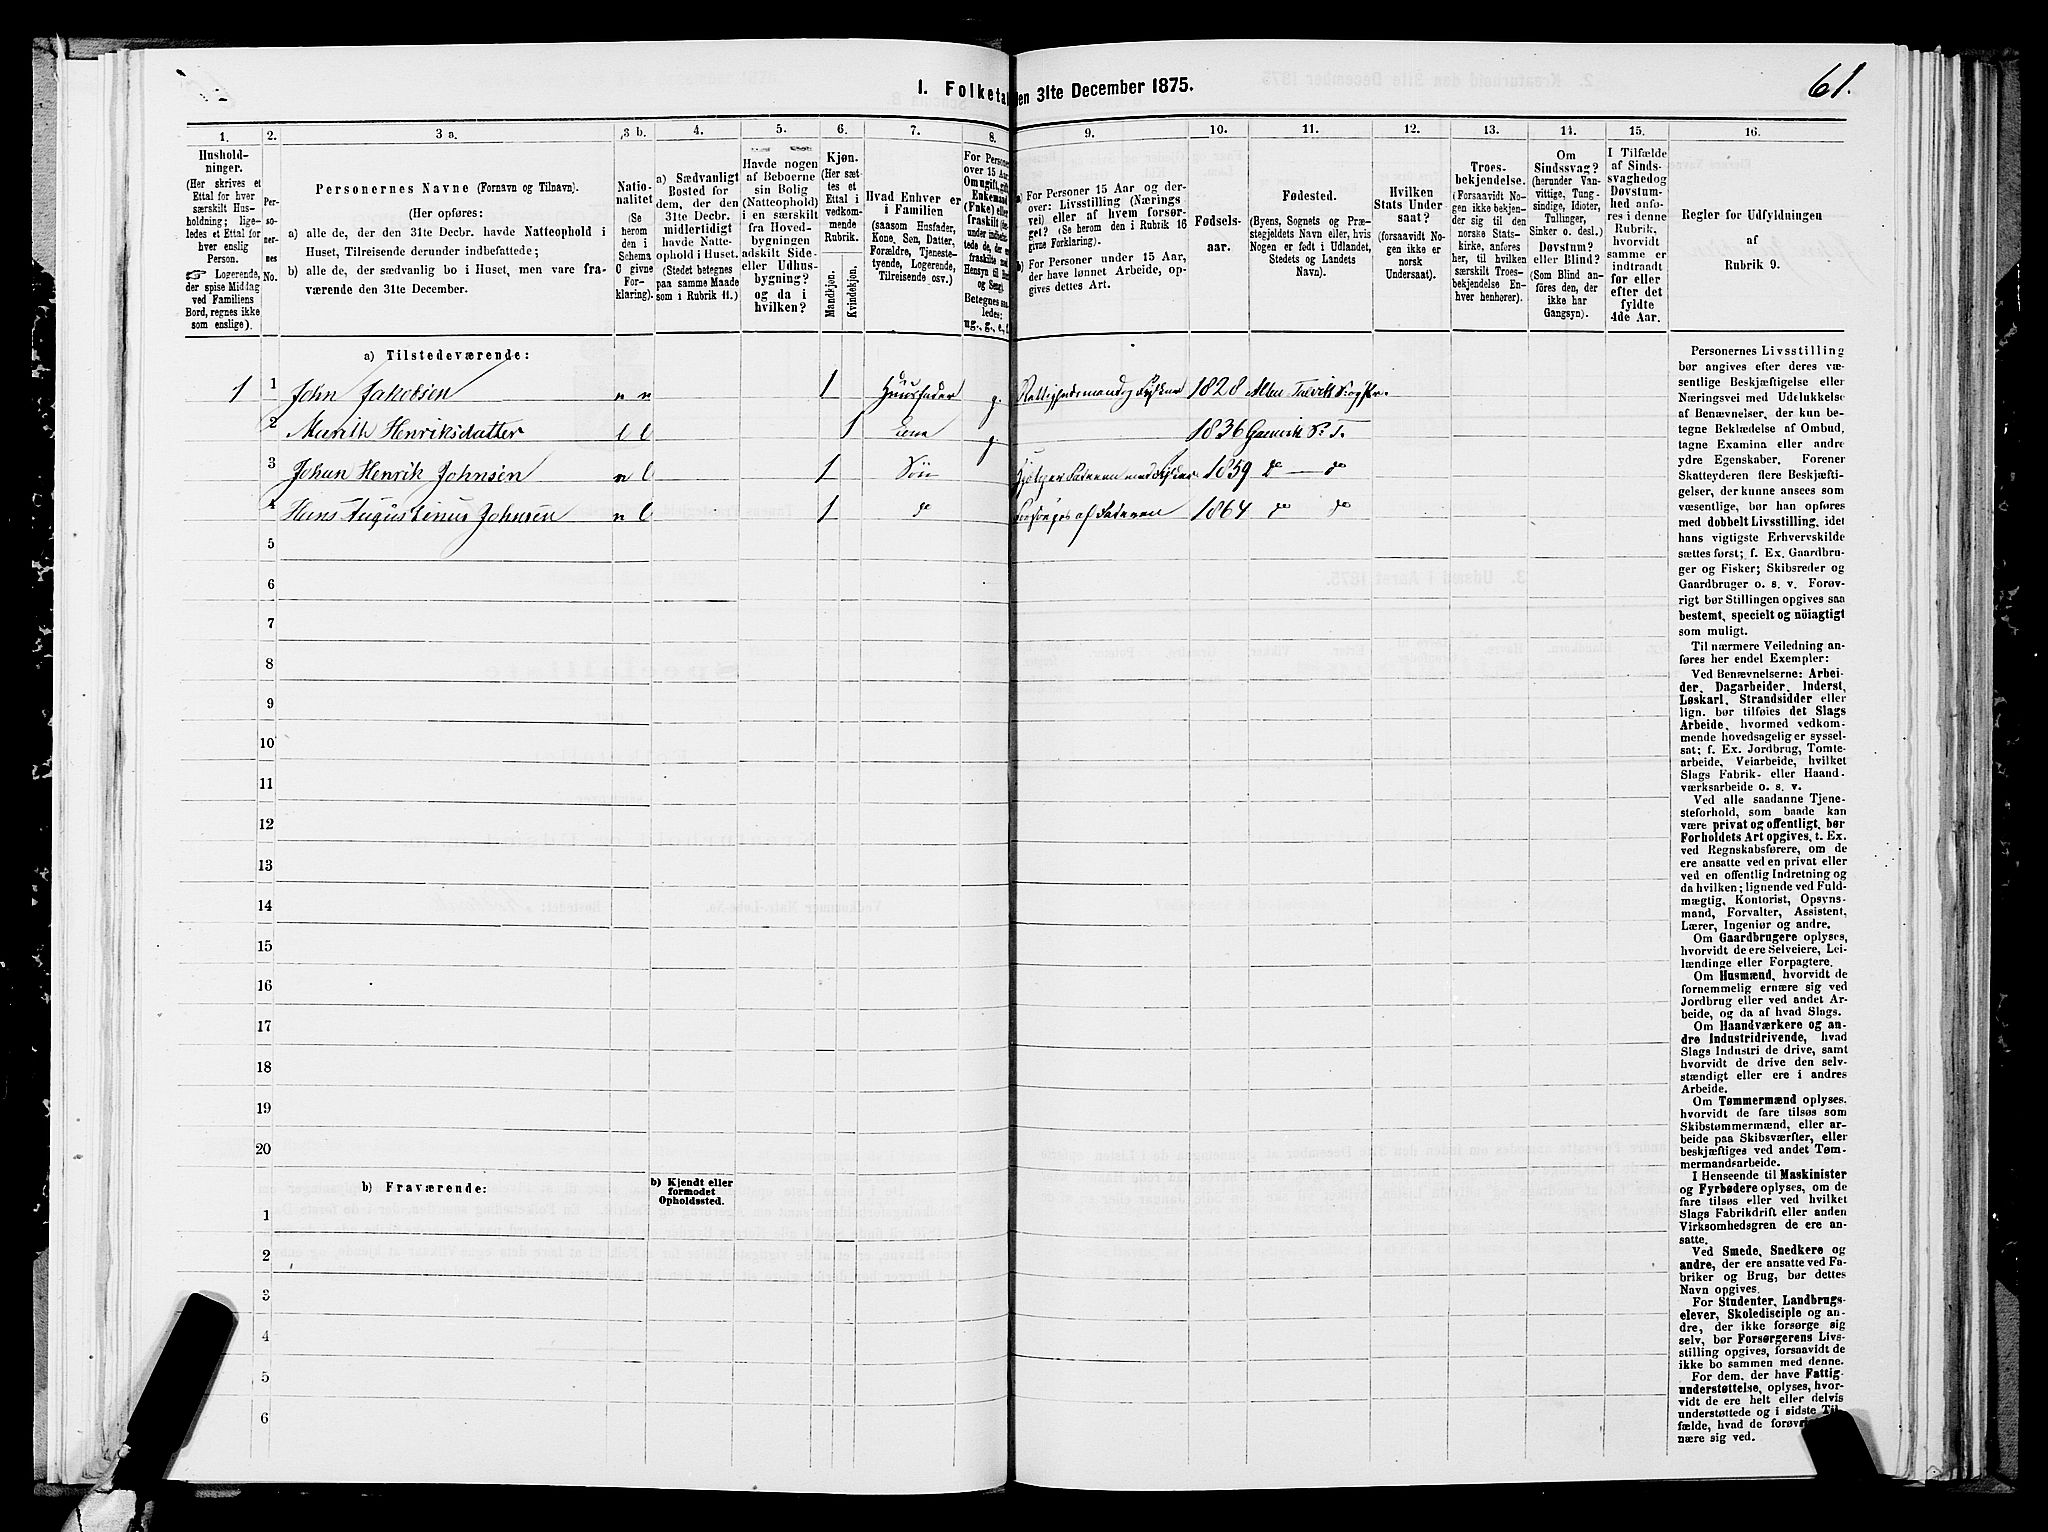 61.
1. Folketal den 31te December 1875.
1.
2.
3 a.
3 b.
4.
5.
6.
7.
8.
9.
10.
11.
12.
13.
14.
15.
16.
Hushold-
ninger.
(Her skrives et
Ettal for hver
særskilt Hus-
holdning; lige-
ledes et Ettal for
hver enslig
Person.
☞ Logerende,
der spise Middag
ved Familiens
Bord, regnes ikke
som enslige).
Per-
so-
ner-
nes
No.
Personernes Navne (Fornavn og Tilnavn).
(Her opføres:
a) alle de, der den 31te Decbr. havde Natteophold i
Huset, Tilreisende derunder indbefattede;
b) alle de, der sædvanlig bo i Huset, men vare fra-
værende den 31te December.
Natio-
nalitet
(Se
herom
den i
Schema
C givne
For-
klaring).
a) Sædvanligt
Bosted for
dem, der den
31te Decbr.
midlertidigt
havde Natte-
ophold i Huset.
(Stedet betegnes
paa samme Maade
som i Rubrik 11.)
Havde nogen
af Beboerne
sin Bolig
(Natteophold)
i en særskilt
fra Hoved-
bygningen
adskilt Side-
eller Udhus-
bygning?
og da i
hvilken?
Kjøn.
(Her sæt-
tes et
Ettal i
vedkom-
mende
Rubrik.
Mandkjøn.
Kvindekjøn.
Hvad Enhver er
i Familien
(saasom Husfader,
Kone, Søn, Datter,
Forældre, Tjeneste-
tyende, Logerende,
Tilreisende osv.)
For Personer
over 15 Aar:
Om ugift, gift,
Enkemand
(Enke) eller
fraskilt
Hensyn til Bord
og Seng).
Betegnes saa-
ledes:
ug., g., e., f.
a) For Personer 15 Aar og der-
over: Livsstilling (Nærings
vei) eller af hvem forsør-
get (Se herom den i Rubrik 16
givne Forklaring).
b) For Personer under 15 Aar,
der have lønnet Arbeide, op-
gives dettes Art.
Fødsels-
aar.
Fødested.
(Byens, Sognets og Præ-
stegjeldets Navn eller, hvis
Nogen er født i Udlandet,
Stedets og Landets
Navn).
Hvilken
Stats Under
saat?
(forsaavidt No-
gen ikke er
norsk
Undersaat).
Troes-
bekjendelse.
(Forsaavidt No-
gen ikke bekjen-
der sig til den
norske Stats-
kirke, anføres
her, til hvilken
særskilt Troes-
bekjendelse En-
hver henhører).
Om
Sindssvag?
(herunder Van-
vittige, Tung-
sindige, Idioter,
Tullinger,
Sinker o. desl.)
Døvstum?
eller Blind?
(Som Blind an-
føres den, der
ikke har
Gangsyn).
I Tilfælde
af Sinds-
svaghed og
Døvstum-
hed anfø-
res i denne
Rubrik,
hvorvidt
samme er
indtraadt
før eller
efter det
fyldte
4de Aar.
Regler for Udfyldningen
af
Rubrik 9.
a) Tilstedeværende:
1 1 John Jakobsen n n 1 Huusfader g. 1828
2 Marith Henriksdatter l l 1 g. 1836 Gamvik S. T.
3 Johan Henrik Johnsen n l 1 Søn 1859 do — do
4 Hans Augustinus Johnsen n l 1 do Forsørges af Faderen 1864 do do
5
6
7
8
9
10
11
12
13
14
15
16
17
18
19
20
b) Fraværende:
b) Kjendt eller
formodet
Opholdssted.
1
2
3
4
5
6
Personernes Livsstilling
bør angives efter deres væ-
sentlige Beskjæftigelse eller
Næringsvei med Udelukkelse
af Benævnelser, der kun be-
tegne Beklædelse af Ombud,
tagne Examina eller andre
ydre Egenskaber. Forener
Skatteyderen flere Beskjæfti-
gelser, der kunne ansees som
væsentlige, bør han opføres
med dobbelt Livsstilling, idet
hans vigtigste Erhvervskilde
sættes først; f. Ex. Gaardbru-
ger og Fisker; Skibsreder og
Gaardbruger o. s. v. Forøv-
rigt bør Stillingen opgives saa
bestemt, specielt og nöiagtigt
som muligt.
Til nærmere Veiledning an-
føres her endel Exempler:
Ved Benævnelserne: Arbei-
der, Dagarbeider, Inderst,
Løskarl, Strandsidder eller
lign. bør tilføies det Slags
Arbeide, hvormed vedkom-
mende hovedsagelig er syssel-
sat; f. Ex. Jordbrug, Tomte-
arbeide, Veiarbeide, hvilket
Slags Fabrik- eller Haand-
værksarbeide o. s. v.
Ved alle saadanne Tjene-
steforhold, som baade kan
være privat og offentligt, bør
Forholdets Art opgives, t. Ex.
ved Regnskabsførere, om de
ere ansatte ved en privat eller
ved en offentlig Indretning og
da hvilken; lignende ved Fuld-
mægtig, Kontorist, Opsyns-
mand, Forvalter, Assistent,
Lærer, Ingeniør og andre.
Om Gaardbrugere oplyses,
hvorvidt de ere Selveiere, Lei-
lændinge eller Forpagtere.
Om Husmænd, hvorvidt de
fornemmelig ernære sig ved
Jordbrug eller ved andet Ar-
beide, og da af hvad Slags.
Om Haandværkere og an-
dre Industridrivende, hvad
Slags Industri de drive, samt
hvorvidt de drive den selv-
stændigt eller ere i andres
Arbeide.
Om Tømmermænd oplyses,
hvorvidt de fare tilsøs som
Skibstømmermænd, eller ar-
beide paa Skibsværfter, eller
beskjæftiges ved andet Tøm-
mermandsarbeide.
I Henseende til Maskinister
og Fyrbødere oplyses, om de
fare tilsøs eller ved hvilket
Slags Fabrikdrift eller anden
Virksomhedsgren de ere an-
satte.
Ved Smede, Snedkere og
andre, der ere ansatte ved Fa-
briker og Brug, bør dettes
Navn opgives.
For Studenter, Landbrugs-
elever, Skoledisciple og an-
dre, der ikke forsørge sig
selv, bør Forsørgerens Livs-
stilling opgives, forsaavidt de
ikke bo sammen med denne.
For dem, der have Fattig-
understøttelse, oplyses, hvor-
vidt de ere helt eller delvis
understøttede og i sidste Til-
fælde, hvad de forøvrigt
nære sig ved.